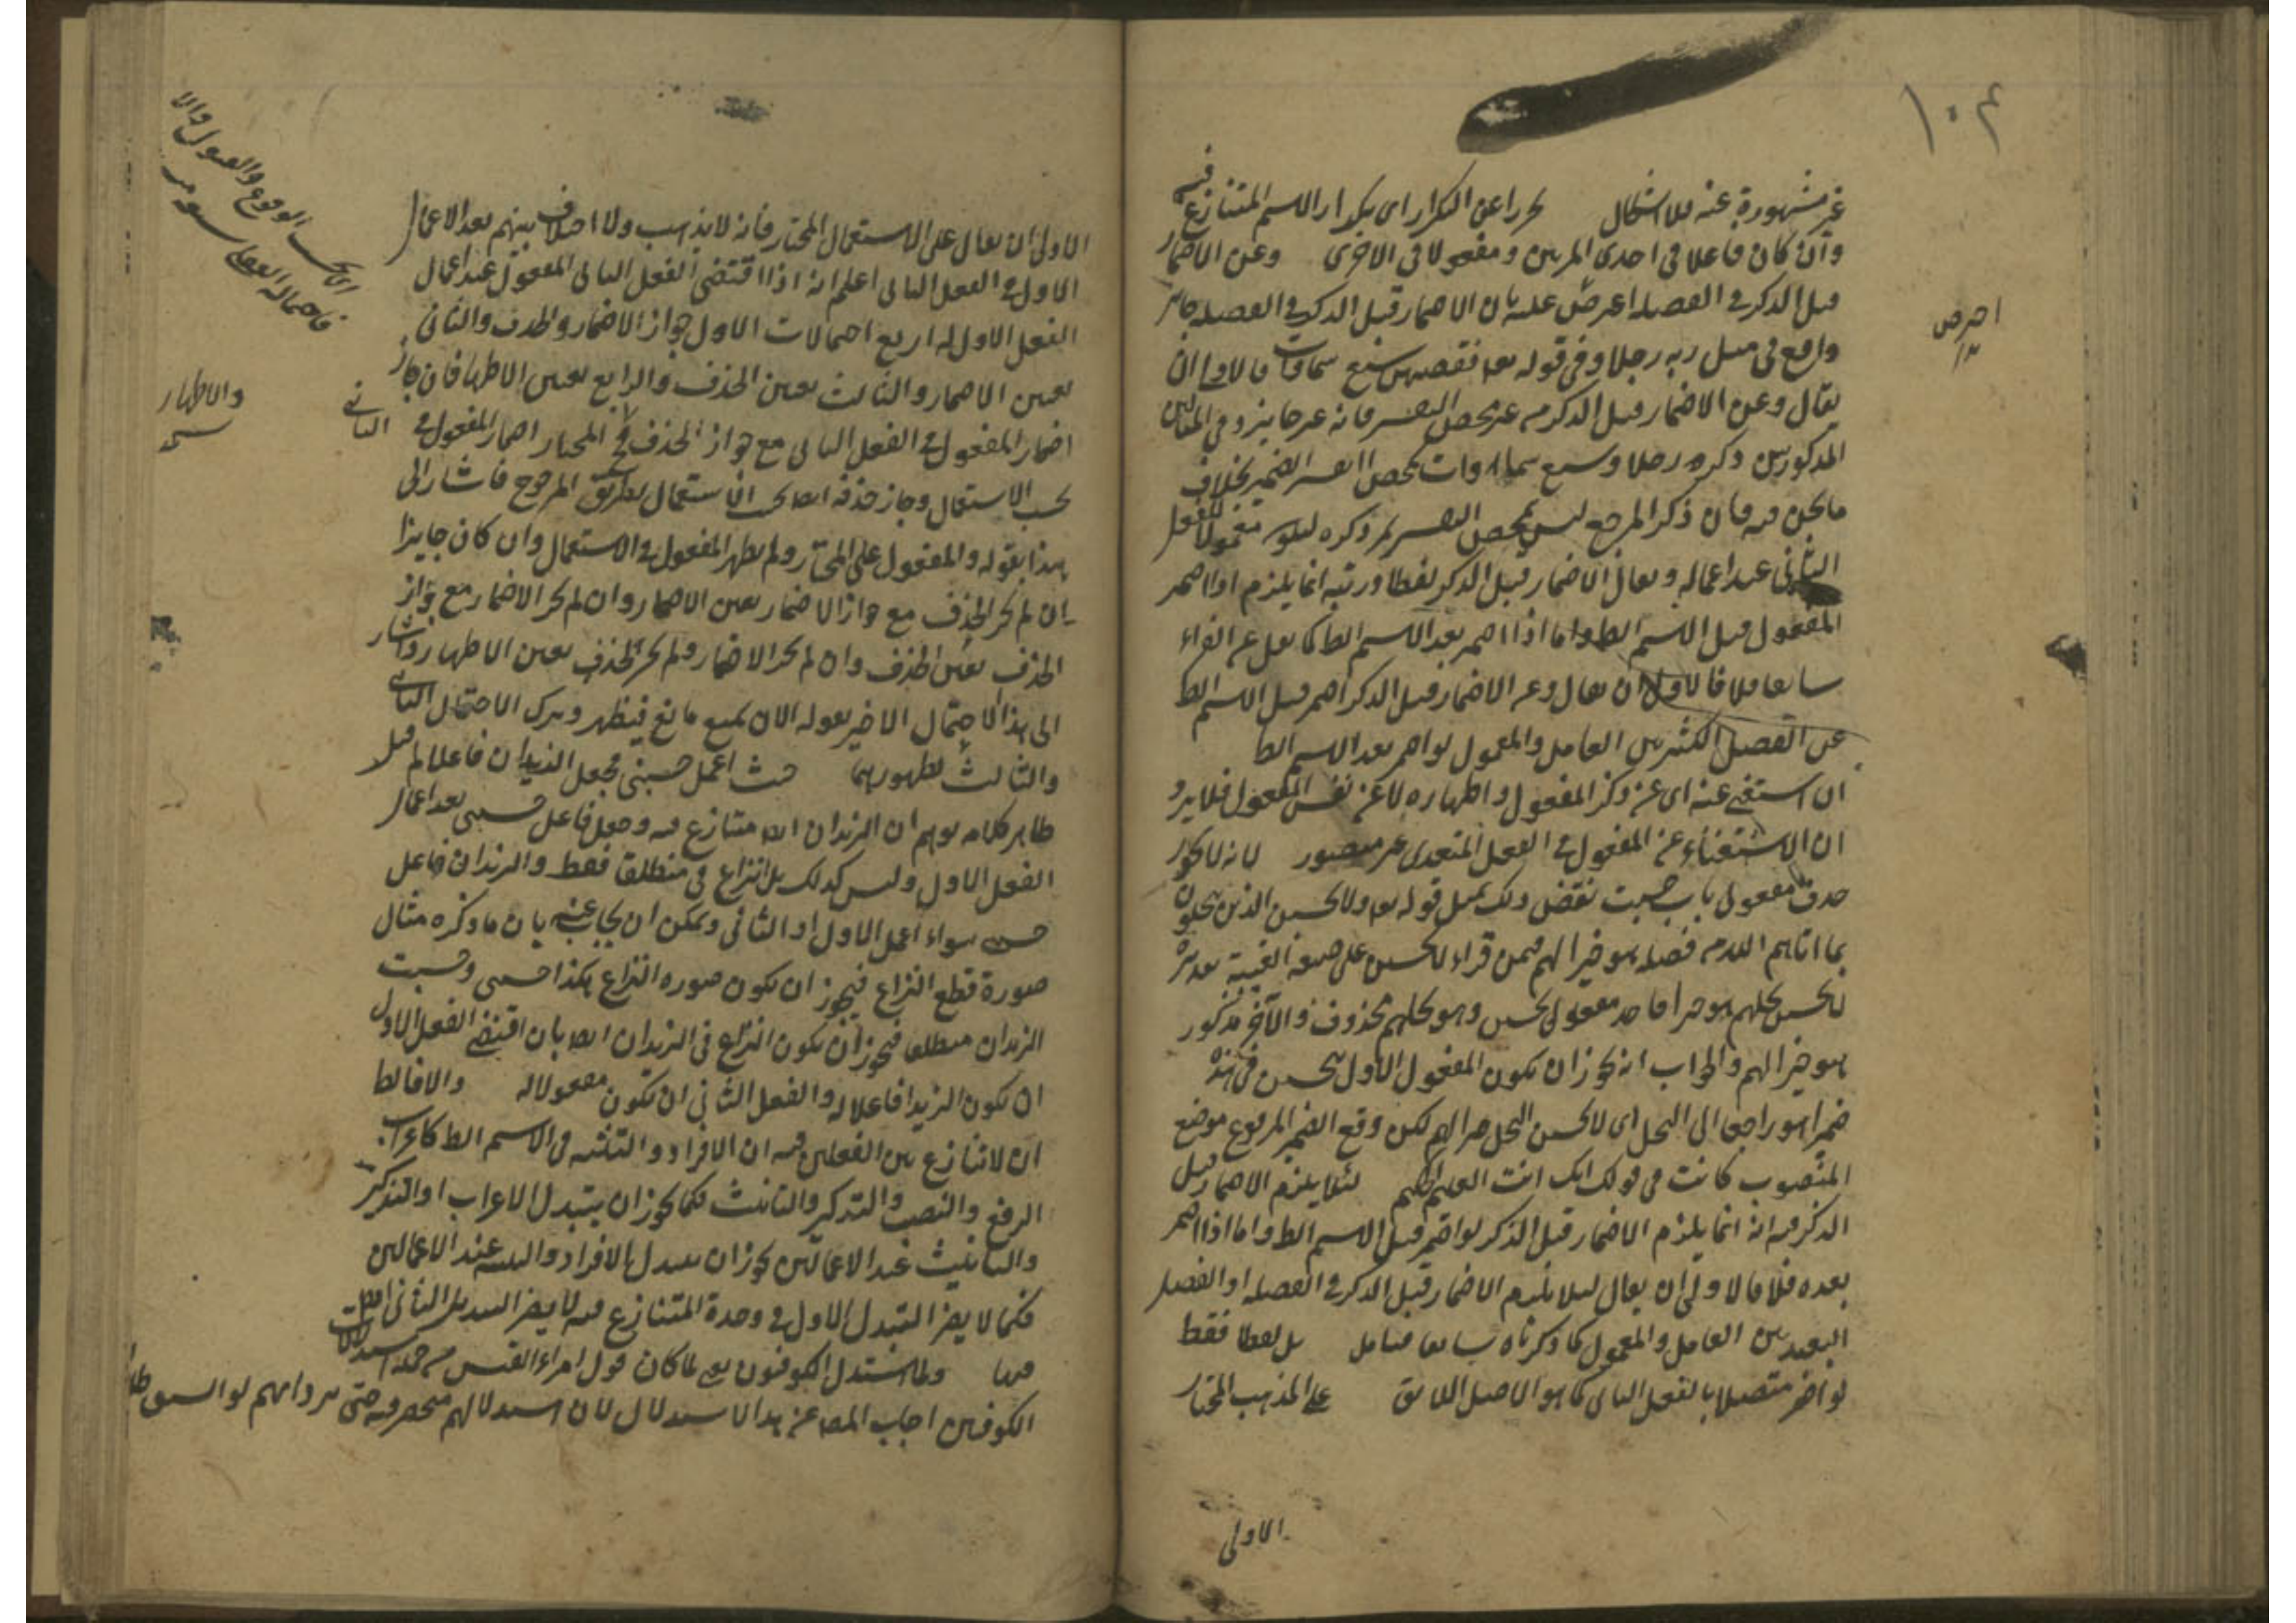 ١٠٤
غير مشهورة عنه فلا اشكال تحرزا عن التكرار اى تكرار الاسم المتنازع فيه
وان كان فاعلا فى احدى المرتين ومفعولا فى الاخرى وعن الاضمار
قبل الذكر فى الفضلة اعترض عليه بان الاضمار قبل الذكر فى الفضلة جائز
واقع فى مثل ربه رجلا وفى قوله تعالى فقضيهن سبع سماوات فالاولى ان
يقال وعن الاضمار قبل الذكر من غير محض التفسير فانه غير جايز وفى المثالين
المذكورين ذكره رجلا وسبع سماوات لمحض التفسير الضمير بخلاف
ما نحن فيه فان ذكر المرجع ليس لمحض التفسير بل ذكره ليكون معمولا للفعل
الثانى عند اعماله ويقال الاضمار قبل الذكر لفظا ورتبة انما يلزم اذا اضمر
المفعول قبل الاسم الظ واما اذا اضمر بعد الاسم الظ كما نقل عن الفراء
سابقا فلا فالاولى ان يقال وعن الاضمار قبل الذكر اضمر قبل الاسم الظ
عن الفصل الكثير بين العامل والمعمول لو اضمر بعد الاسم الظ
ان استغنى عنه اى عن ذكر المفعول واظهاره لا عن نفس المفعول فلا يرد
ان الاستغناء عن المفعول فى الفعل المتعدى غير متصور لانه لا يجوز
حذف مفعولى باب حسبت نقض ذلك بمثل قوله تعالى ولا يحسبن الذين يبخلون
بما اتاهم الله من فضله هو خيرا لهم فيمن قراء لا يحسبن على صيغة الغيبة تقديره
لا يحسبن بخلهم هو خيرا فاحد مفعولى يحسبن وهو بخلهم محذوف والآخر مذكور
هو خيرا لهم والجواب انه يجوز ان يكون المفعول الاول ليحسبن فى هذه
ضميرا هو راجعا الى البخل اى لا يحسبن البخل خيرا لهم لكن وقع الضمير المرفوع موضع
المنصوب كانت فى قولك انك انت العليم الحكيم لئلا يلزم الاضمار قبل
الذكر فيه انه انما يلزم الاضمار قبل الذكر لو اضمر قبل الاسم الظ واما اذا اضمر
بعده فلا فالاولى ان يقال لئلا يلزم الاضمار قبل الذكر فى الفضلة او الفصل
البعيد بين العامل والمعمول كما ذكرناه سابقا فتامل بل لفظا فقط
لو اضمر متصلا بالفعل الثانى كما هو الاصل اللائق على المذهب المختار
الاولى
الاولى ان يقال على الاستعمال المختار فانه لا يذهب ولا اختلاف بينهم بعد الاعمال
الاول فى الفعل الثانى اعلم انه اذا اقتضى الفعل الثانى المفعول عند اعمال
الفعل الاول له اربع احتمالات الاول جواز الاضمار والحذف والثانى
تعين الاضمار والثالث تعين الحذف والرابع تعين الاظهار فان جاز
اضمار المفعول فى الفعل الثانى مع جواز الحذف فالمختار اضمار المفعول فى الثانى
بحسب الاستعمال وجاز حذفه ايضا بحسب الاستعمال بطريق المرجوح فاشار الى
هذا بقوله والمفعول على المختار ولم يظهر المفعول فى الاستعمال وان كان جايزا
ان لم يجز الحذف مع جواز الاضمار تعين الاضمار وان لم يجز الاضمار مع جواز
الحذف تعين الحذف وان لم يجز الاضمار ولم يجز الحذف تعين الاظهار واشار
الى هذا الاحتمال الاخير بقوله الا ان يمنع مانع فيظهر وترك الاحتمال الثانى
والثالث لظهورهما حيث اعمل حسبنى فجعل الزيدان فاعلا له قيل
ظاهر كلامه يوهم ان الزيدان ايضا متنازع فيه وجعل فاعل حسبنى بعد اعمال
الفعل الاول وليس كذلك بل النزاع فى منطلقا فقط والزيدان فاعل
حسبنى سواء اعمل الاول او الثانى ويمكن ان يجاب عنه بان ما ذكره مثال
صورة قطع النزاع فيجوز ان يكون صورة النزاع هكذا حسبنى وحسبت
الزيدان منطلقا فيجوز ان يكون النزاع فى الزيدان ايضا بان اقتضى الفعل الاول
ان يكون الزيدان فاعلا له والفعل الثانى ان يكون مفعولا له والا فالظ
ان لا تنازع بين الفعلين فيه ان الافراد والتثنيه فى الاسم الظ كاعراب
الرفع والنصب والتذكير والتانيث فكما يجوز ان يتبدل الاعراب او التذكير
والتانيث عند الاعمالين يجوز ان يتبدل الافراد والتثنيه عند الاعمالين
فكما لا يضر التبدل الاول فى وحدة المتنازع فيه لا يضر التبديل الثانى ايضا
فيها ولما استدل الكوفيون يعنى لما كان قول امراء القيس من جملة استدلالات
الكوفيين اجاب المص عن هذا الاستدلال لا ان استدلالهم منحصر فيه حتى يرد انهم
والاظهار
نسخه